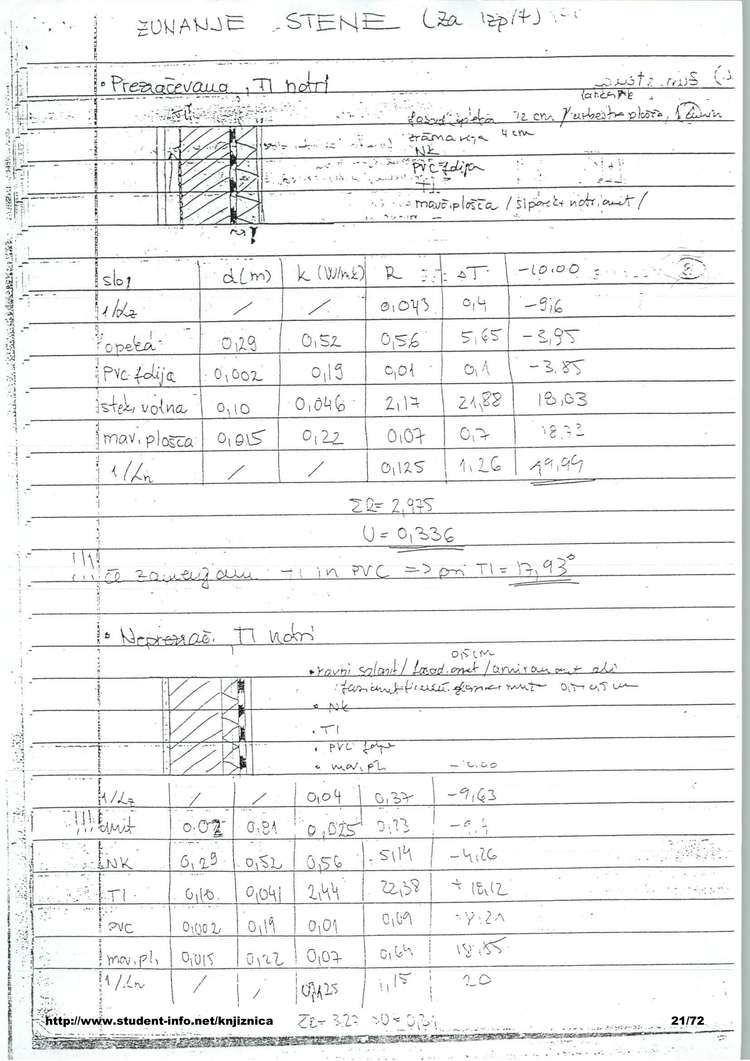 ZUNANJE STENE (za izpit)
• Prezračevana, TI notri
12 cm / plošča,
zračna 4 cm
NK
PVC folija
TI
mavč. plošča / omet /
sloj d(m) k (W/mK) R ΔT -10.00
1/αz / / 0,043 0,4 -9,6
opeka 0,29 0,52 0,56 5,65 -3,95
PVC folija 0,002 0,19 0,01 0,1 -3,85
stek. volna 0,10 0,046 2,17 21,88 18,03
mav. plošča 0,015 0,22 0,07 0,7 18,73
1/αn / / 0,125 1,26 19,99
ΣR= 2,975
U = 0,336
!!! če zamenjam TI in PVC => pri TI = 17,93°
• Neprezrač. TI notri
0,5 cm
• NK
• TI
• PVC folija
• mav. pl. -10.00
1/αz / / 0,04 0,37 -9,63
!!! omet 0.02 0,81 0,025 0,23 -9,4
NK 0,29 0,52 0,56 5,14 -4,26
TI 0,10 0,041 2,44 22,38 + 18,12
PVC 0,002 0,19 0,01 0,09 18,21
mav. pl. 0,015 0,22 0,07 0,64 18,85
1/αn / / 0,125 1,15 20
http://www.student-info.net/knjiznica ΣR= 3.27 => U = 0,31 21/72